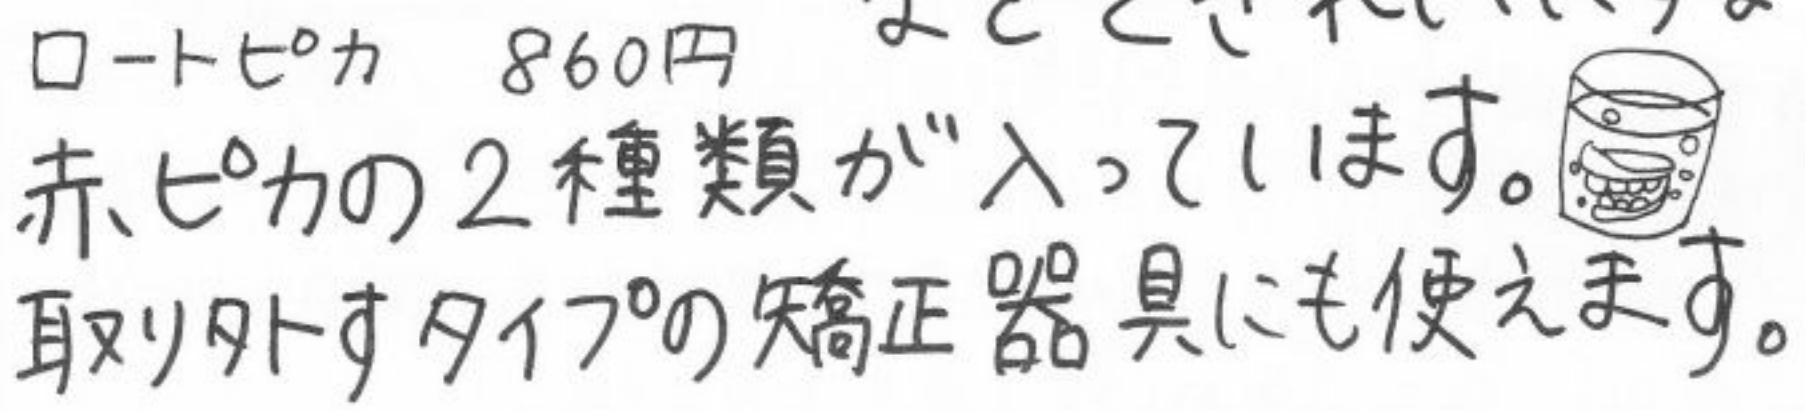 ロートピカ 860円
赤、ピカの2種類が入っています。
取り外すタイプの矯正器具にも使えます。